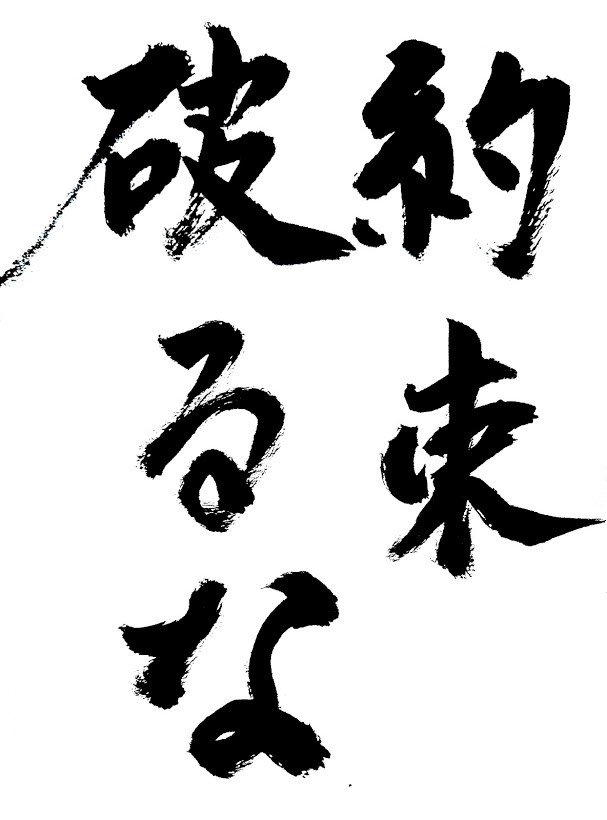 約束
破るな